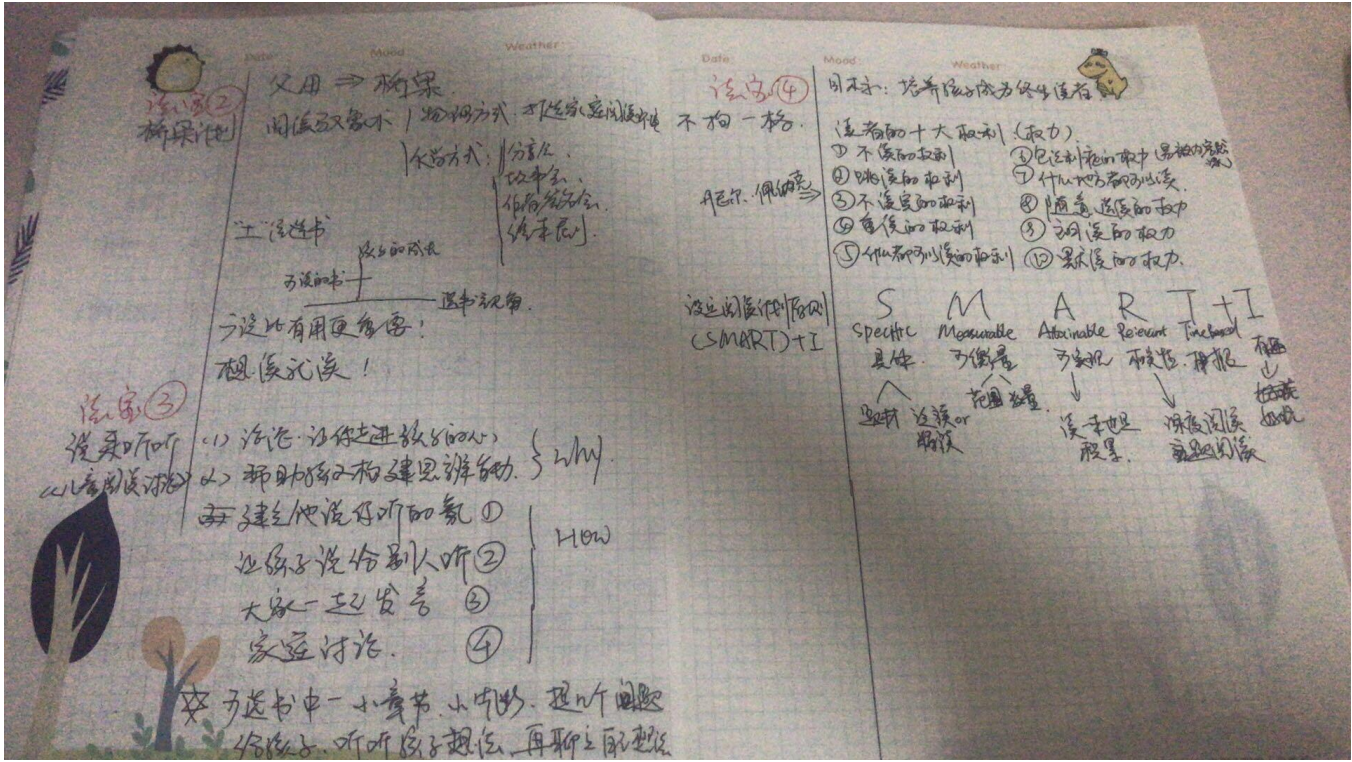 Date:
Mood
Weather:
法宝②
桥梁计划
父母 ⇒ 桥梁
阅读
物理方式:打造家庭阅读
化学方式:
分享会、
故事会、
绘本展
"土"法选书
孩子的成长
可读的书
选书视角
可读比有用更重要!
想读就读!
法宝③
说来听听
《儿童阅读讨论》
(1) 讨论 让你走进孩子的心
(2) 帮助孩子构建思辨能力.
Why.
建立他说你听的氛 ①
让孩子说给别人听 ②
大家一起发言 ③
家庭讨论. ④
How
☆ 可选书中一小章节、小片段. 提几个问题
给孩子. 听听孩子想法, 再聊聊自己想法
Date:
Mood
Weather
法宝④
不拘一格.
目标: 培养孩子成为终生读者
读者的十大权利 (权力)
丹尼尔·佩纳克 ⇒
① 不读的权利
② 跳读的权利
③ 不读完的权利
④ 重读的权利
⑤ 什么都可以读的权利
⑥ 包法利夜的权力
⑦ 什么地方都可以读.
⑧ 随意选读的权力
⑨ 朗读的权力
⑩ 默读的权力.
设立阅读计划原则
(SMART)+I
S M A R T +I
Specific Measurable Attainable Relevant Time Based
具体. 可衡量 可实现 相关性.
题材 泛读or
范围 数量
读一本也是
积累.
深度阅读
主题阅读